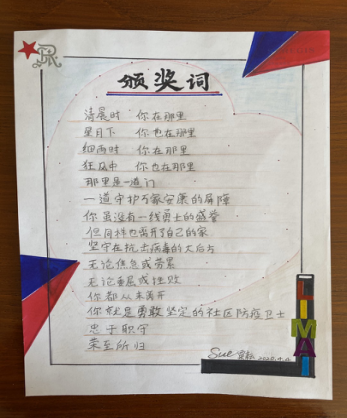 颁奖词
清晨时 你在那里
星月下 你也在那里
细雨时 你在那里
狂风中 你也在那里
那里是一道门
一道守护万家安康的屏障
你虽没有一线勇士的盛誉
但同样也离开了自己的家
坚守在抗击病毒的大后方
无论焦急或劳累
无论委屈或挫败
你都从未离开
你就是勇敢坚定的社区防疫卫士
忠于职守
荣至所归
Sue
LIMAI